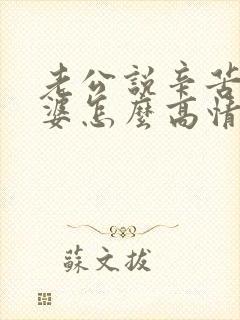 老公說辛苦
婆怎麼高情
蘇文拔